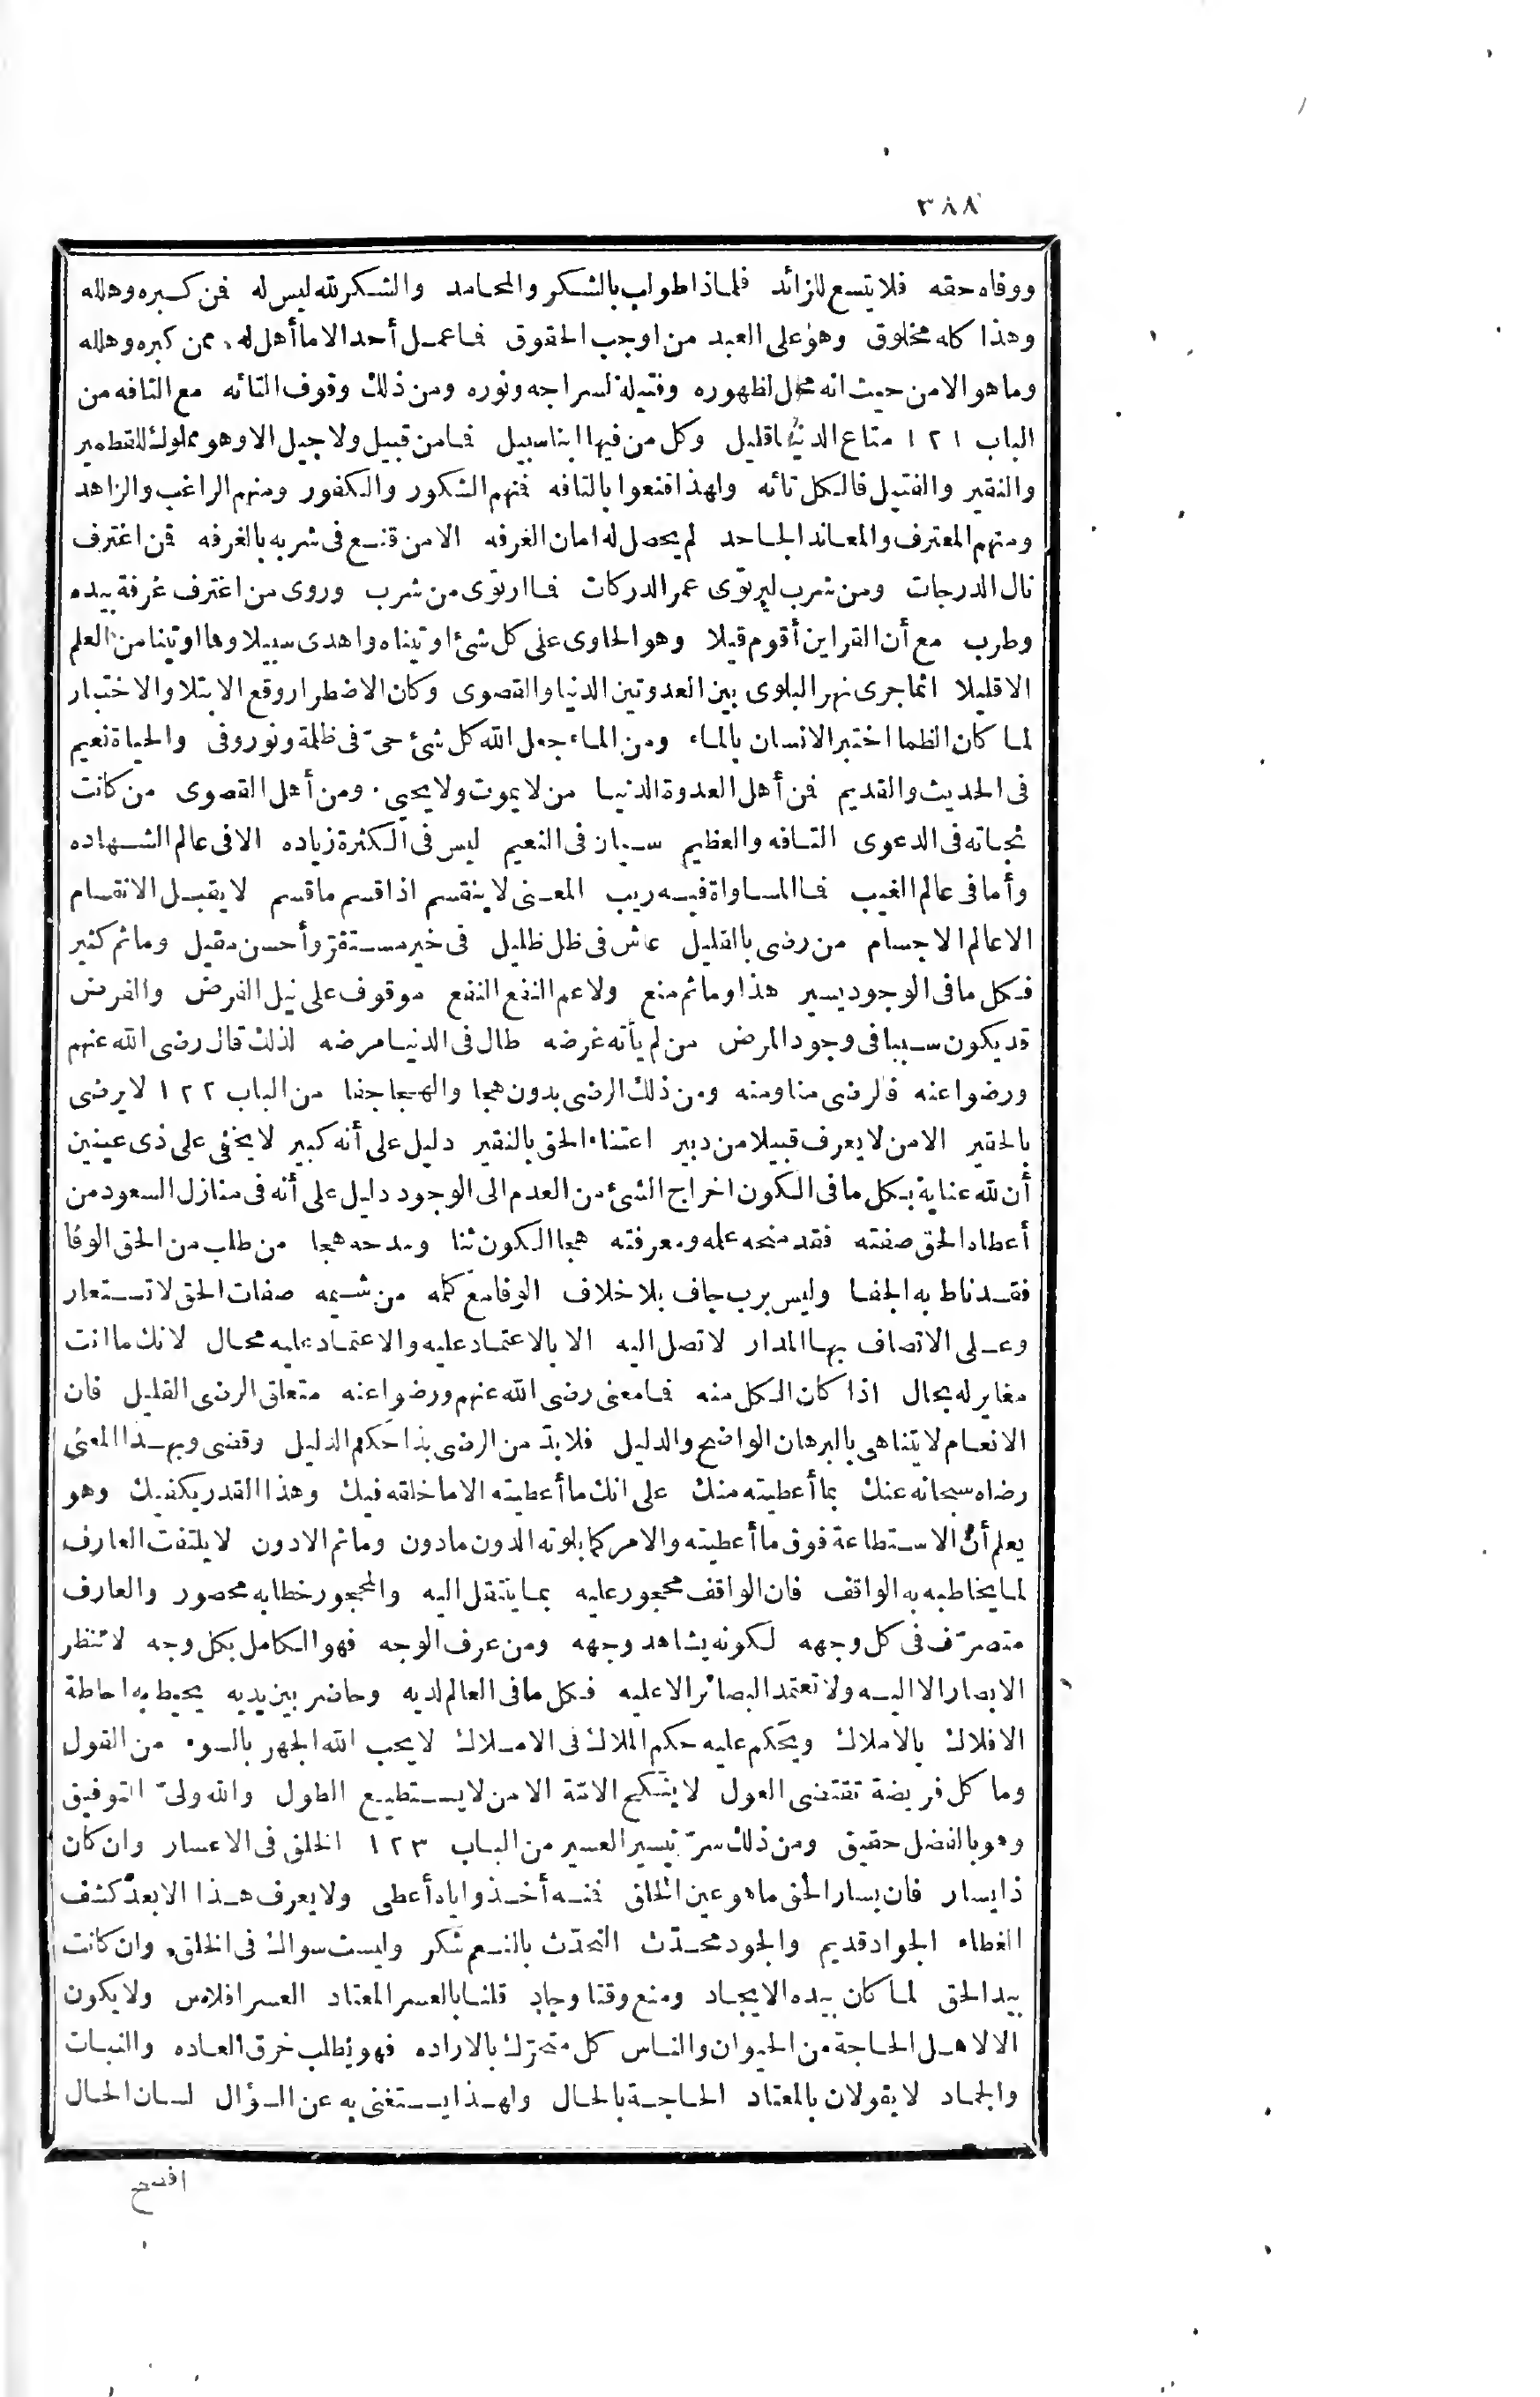 ٣٨٨
ووفاه حقه فلا يتسع للزائد فلماذا طولب بالشكر والمحامد والشكر لله ليس له فمن كبره وهلله
وهذا كله مخلوق وهو على العبد من اوجب الحقوق فما عمل أحد الا ما أهل له ممن كبره وهلله
وما هو الا من حيث انه محل لظهوره وفتيلة لسراجه ونوره ومن ذلك وقوف التائه مع التافه من
الباب ١٢١ متاع الدنيا قليل وكل من فيها ابنا سبيل فما من قبيل ولا جيل الا وهو مملوك للقطمير
والنقير والفتيل فالكل تائه ولهذا قنعوا بالتافه فمنهم الشكور والكفور ومنهم الراغب والزاهد
ومنهم المعترف والمعاند الجاحد لم يحصل له امان الغرفه الا من قنع فى شربه بالغرفه فمن اغترف
نال الدرجات ومن شرب ليرتوى عمر الدركات فما ارتوى من شرب وروى من اغترف غرفة بيده
وطرب مع أن القراين أقوم قيلا وهو الحاوى على كل شئ اوتيناه واهدى سبيلا وما اوتينا من العلم
الا قليلا انما جرى نهر البلوى بين العدوتين الدنيا والقصوى وكان الاضطرار وقع الابتلا والاختبار
لما كان الظما اختبر الانسان بالماء ومن الماء جعل الله كل شئ حىّ فى ظلمة ونور وفى والحياة نعيم
فى الحديث والقديم فمن أهل العدوة الدنيا من لا يموت ولا يحيى ومن أهل القصوى من كانت
نجاته فى الدعوى التافه والعظيم سيان فى النعيم ليس فى الكثرة زياده الا فى عالم الشهاده
وأما فى عالم الغيب فما المساواة فيه ريب المعنى لا ينقسم اذا قسم ما قسم لا يقبل الانقسام
الا عالم الاجسام من رضى بالقليل عاش فى ظل ظليل فى خير مستقرّ وأحسن مقيل وما ثم كثير
فكل ما فى الوجود يسير هذا وما ثم منع ولا عم النفع النفع موقوف على نيل الغرض والغرض
قد يكون سببا فى وجود المرض من لم يأته غرضه طال فى الدنيا مرضه لذلك قال رضى الله عنهم
ورضوا عنه فالرضى منا ومنه ومن ذلك الرضى بدون هجا والهجا جفا من الباب ١٢٢ لا يرضى
بالحقير الا من لا يعرف قبيلا من دبير اعتناء الحق بالنقير دليل على أنه كبير لا يخفى على ذى عينين
أن لله عناية بكل ما فى الكون اخراج الشئ من العدم الى الوجود دليل على أنه فى منازل السعود من
أعطاه الحق صفته فقد منحه علمه ومعرفته هجا الكون ثنا ومدحه هجا من طلب من الحق الوفا
فقد ناط به الجفا وليس برب جاف بلا خلاف الوفا مع كلمه من شيمه صفات الحق لا تستعار
وعلى الاتصاف بها المدار لا تصل اليه الا بالاعتماد عليه والاعتماد عليه محال لانك ما انت
مغاير له بحال اذا كان الكل منه فما معنى رضى الله عنهم ورضوا عنه متعلق الرضى القليل فان
الانعام لا يتناهى بالبرهان الواضح والدليل فلا بدّ من الرضى بذا حكم الدليل وقضى وبهذا المعنى
رضاه سبحانه عنك بما أعطيته منك على انك ما أعطيته الا ما خلقه فيك وهذا القدر يكفيك وهو
يعلم أنّ الاستطاعة فوق ما أعطيته والامر كما بلوته الدون ما دون وما ثم الا دون لا يلتفت العارف
لما يخاطبه به الواقف فان الواقف محجور عليه بما ينتقل اليه والمحجور خطابه محصور والعارف
متصرّف فى كل وجهه لكونه يشاهد وجهه ومن عرف الوجه فهو الكامل بكل وجه لا تنظر
الابصار الا اليه ولا تعتمد البصائر الا عليه فكل ما فى العالم لديه وحاضر بين يديه يحيط به احاطة
الافلاك بالاملاك ويتحكم عليه حكم الملاك فى الاملاك لا يحب الله الجهر بالسوء من القول
وما كل فريضة تقتضى العول لا ينكح الامة الا من لا يستطيع الطول والله ولىّ التوفيق
وهو بالفضل حقيق ومن ذلك سرّ تيسير العسير من الباب ١٢٣ الخلق فى الاعسار وان كان
ذا يسار فان يسار الحق ما هو عين الخلق فمنه أخذ واياه أعطى ولا يعرف هذا الا بعد كشف
الغطاء الجواد قديم والجود محدّث التحدّث بالنعم شكر وليست سواك فى الخلق وان كانت
بيد الحق لما كان بيده الايجاد ومنع وقتا وجاد قلنا بالعسر المعتاد العسر افلاس ولا يكون
الا لاهل الحاجة من الحيوان والناس كل متحرّك بالاراده فهو يطلب خرق العاده والنبات
والجماد لا يقولان بالمعتاد الحاجة بالحال ولهذا يستغنى به عن السؤال لسان الحال
افصح